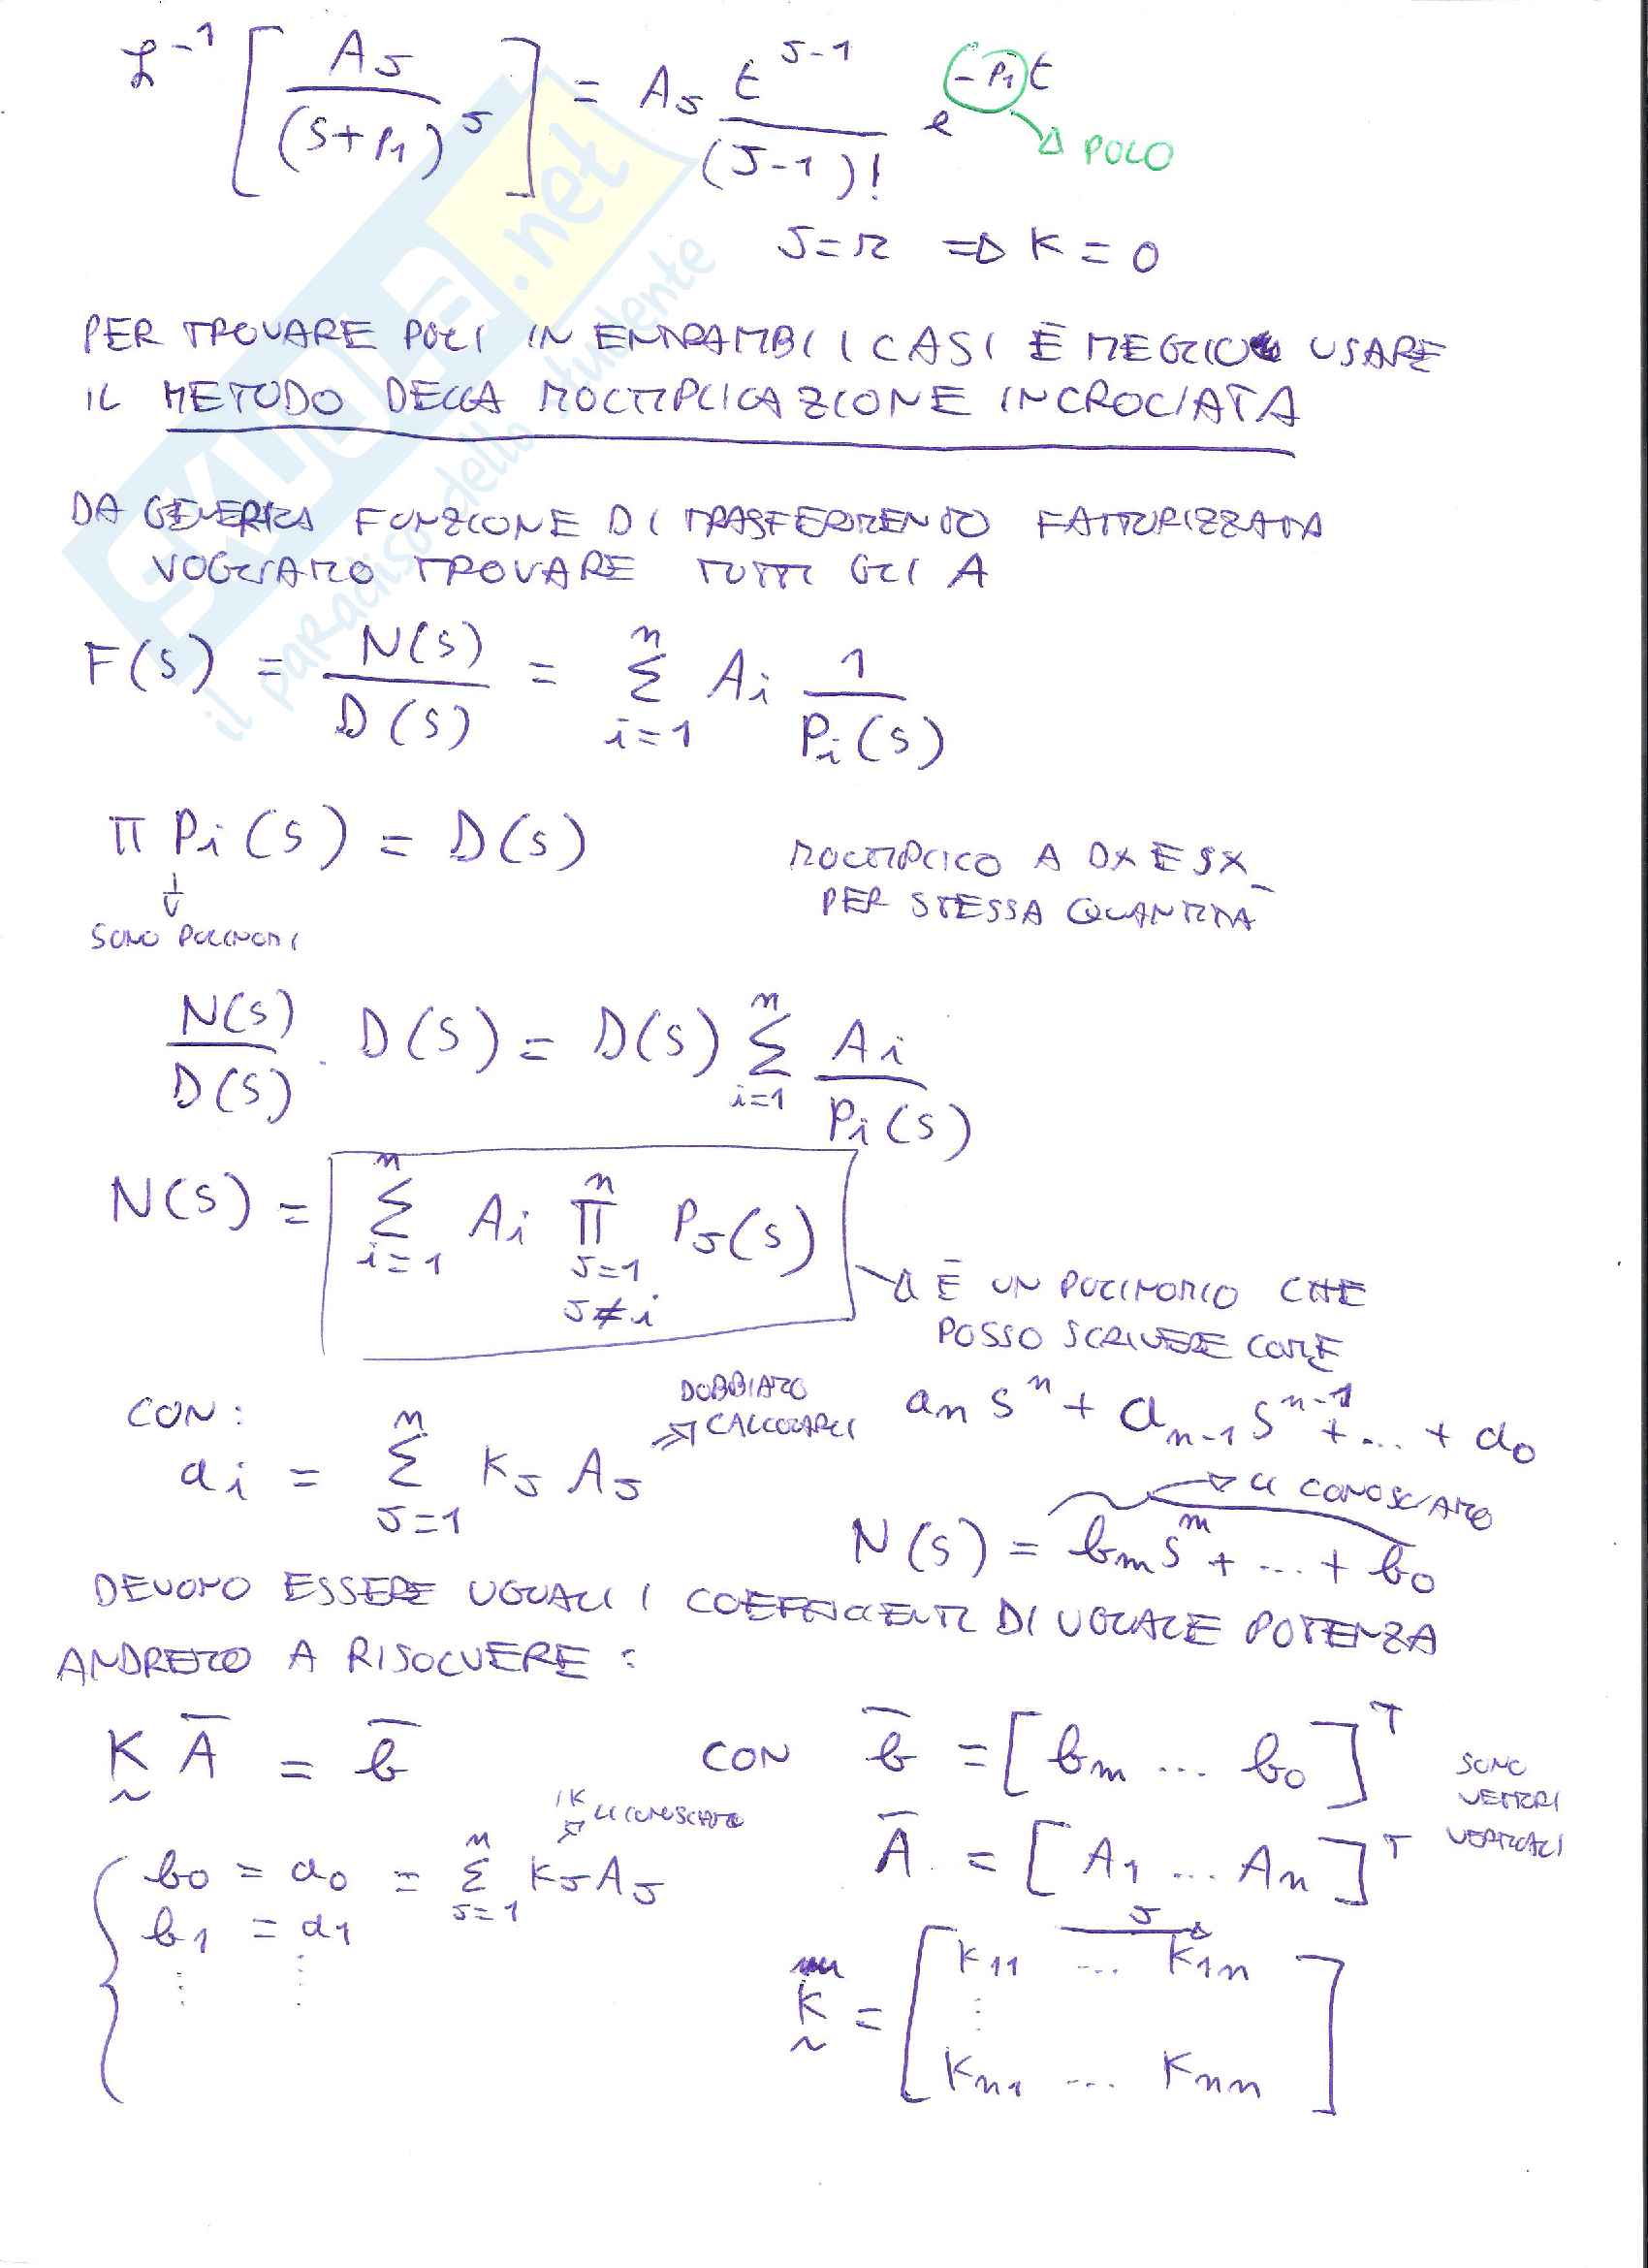 ℒ⁻¹ [ A_J / (s+p₁)^J ] = A_J t^(J-1) / (J-1)! e^(-p₁t) → POLO
J = r ⇒ K = 0
PER TROVARE POLI IN ENTRAMBI I CASI È MEGLIO USARE
IL METODO DELLA MOLTIPLICAZIONE INCROCIATA
DA GENERICA FUNZIONE DI TRASFERIMENTO FATTORIZZATA
VOGLIAMO TROVARE TUTTI GLI A
F(s) = N(s)/D(s) = Σ_{i=1}^{n} A_i 1/P_i(s)
Π P_i(s) = D(s)
SONO POLINOMI
MOLTIPLICO A DX E SX
PER STESSA QUANTITÀ
N(s)/D(s) · D(s) = D(s) Σ_{i=1}^{n} A_i/P_i(s)
N(s) = Σ_{i=1}^{n} A_i Π_{J=1, J≠i}^{n} P_J(s)
→ È UN POLINOMIO CHE
POSSO SCRIVERE COME
a_n s^n + a_{n-1} s^{n-1} + ... + a_0
CON:
a_i = Σ_{J=1}^{n} K_J A_J
⇒ DOBBIAMO
CALCOLARLI
→ LI CONOSCIAMO
N(s) = b_m s^m + ... + b_0
DEVONO ESSERE UGUALI I COEFFICIENTI DI UGUALE POTENZA
ANDREMO A RISOLVERE:
K A̅ = b̅ CON b̅ = [b_m ... b_0]^T
SONO
VETTORI
VERTICALI
A̅ = [A_1 ... A_n]^T
I K LI CONOSCIAMO
b_0 = a_0 = Σ_{J=1}^{n} K_J A_J
b_1 = a_1
⋮ ⋮
J →
K = [ K_11 ... K_1n
⋮
K_n1 ... K_nn ]
SKUOLA.net
il paradiso dello studente